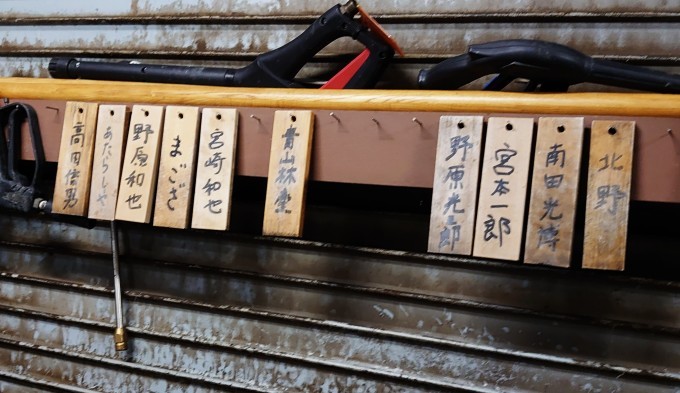 高田信男
あたらしや
野原和也
まござ
宮崎和也
青山林堂
野原光郎
宮本一郎
南田光博
北野